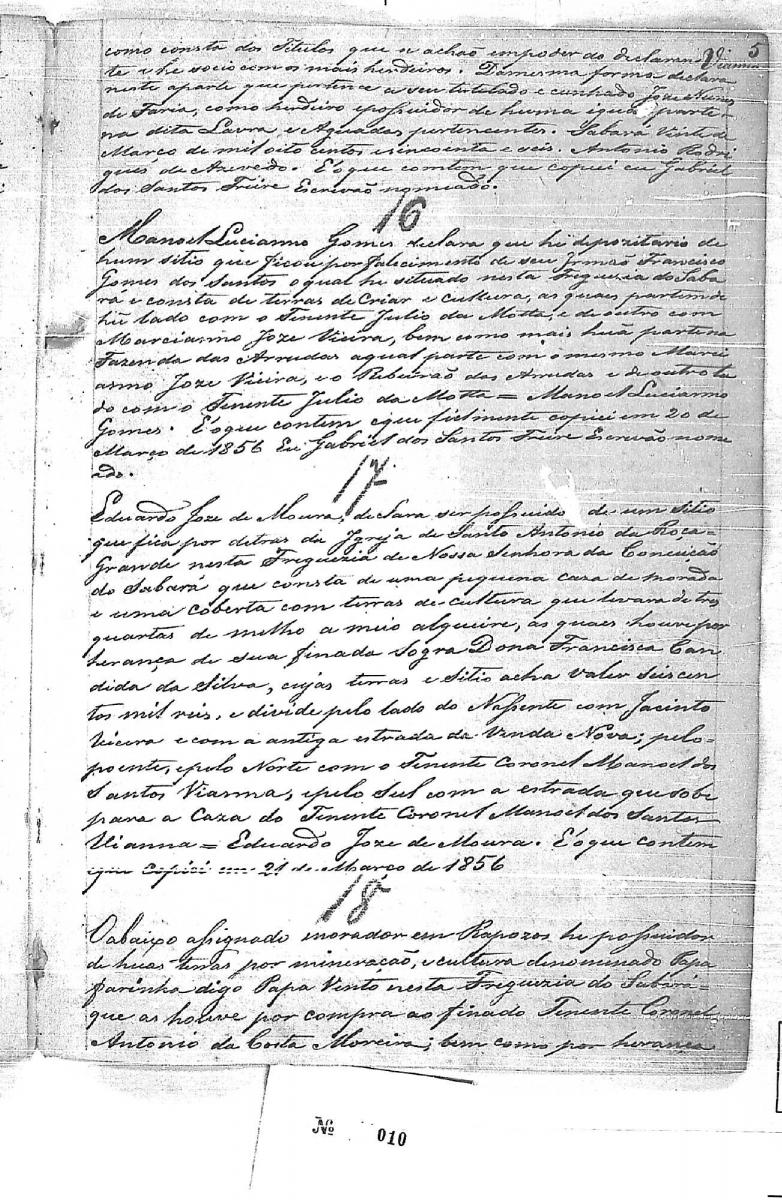 5
Vianna
como consta dos Titulos que se achão em poder do declaran
te e he socio com os mais herdeiros. Da mesma forma declara
neste aparte que pertence a seu tutelado e cunhado Joze Nunes
de Faria, como herdeiro epossuidor de huma igual parte
na dita Lavra, e Aguadas pertencentes. Sabará Vinte de
Março de mil oito centos e sincoenta e seis. Antonio Rodri
gues de Azevedo. E o que contem que copiei eu Gabriel
dos Santos Freire Escrivão nomeado.
16
Manoel Lucianno Gomes declara que he depozitario de
hum sitio que ficou por falecimento de seu Irmão Francisco
Gomes dos Santos o qual he situado nesta Freguezia do Saba
rá e consta de terras de Criar e cultura, as quaes partem de
hũ lado com o Tenente Julio da Motta, e de outro com
Marcianno Joze Vieira, bem como mais huã parte na
Fazenda das Arrudas a qual parte com o mesmo Marci
anno Joze Vieira, e o Ribeirão das Arrudas e de outro la
do com o Tenente Julio da Motta = Manoel Lucianno
Gomes. E o que contem e que fielmente copiei em 20 de
Março de 1856 Eu Gabriel dos Santos Freire Escrivão nome
ado.
17
Eduardo Joze de Moura, de Lara ser possuido de um Sitio
que fica por detras da Igreja de Santo Antonio da Roca-
Grande nesta Freguezia de Nossa Senhora da Conceição
do Sabará que consta de uma pequena caza de morada
e uma coberta com terras de cultura que levara de tres
quartas de milho a meio alqueire, as quaes houve por
herança de sua finada Sogra Dona Francisca Can
dida da Silva, cujas terras e Sitio acha valer seiscen
tos mil reis, e divide pelo lado do Nassente com Jacinto
Vieira e com a antiga estrada da Venda Nova; pelo-
poente, epelo Norte com o Tenente Coronel Manoel dos
Santos Vianna, epelo Sul com a estrada que sobe
para a Caza do Tenente Coronel Manoel dos Santos
Vianna = Eduardo Joze de Moura. E o que contem
eque copiei em 21 de Março de 1856
18
O abaixo assignado morador em Rapozos he possuidor
de huas terras por mineração, e cultura denominado Papa
farinha digo Papa Vento nesta Freguezia do Sabara=
que as houve por compra ao finado Tenente Coronel
Antonio da Costa Moreira; bem como por herança
Nº 010